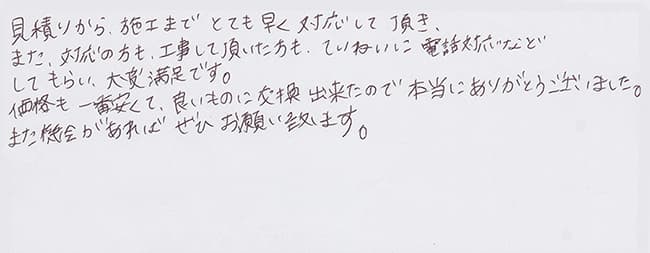 見積りから、施工まで とても早く対応して頂き
また、対応の方も、工事して頂いた方も、ていねいに電話対応など
してもらい、大変満足です。
価格も一番安くて、良いものに交換出来たので本当にありがとうございました。
また機会があれば ぜひ お願い致します。